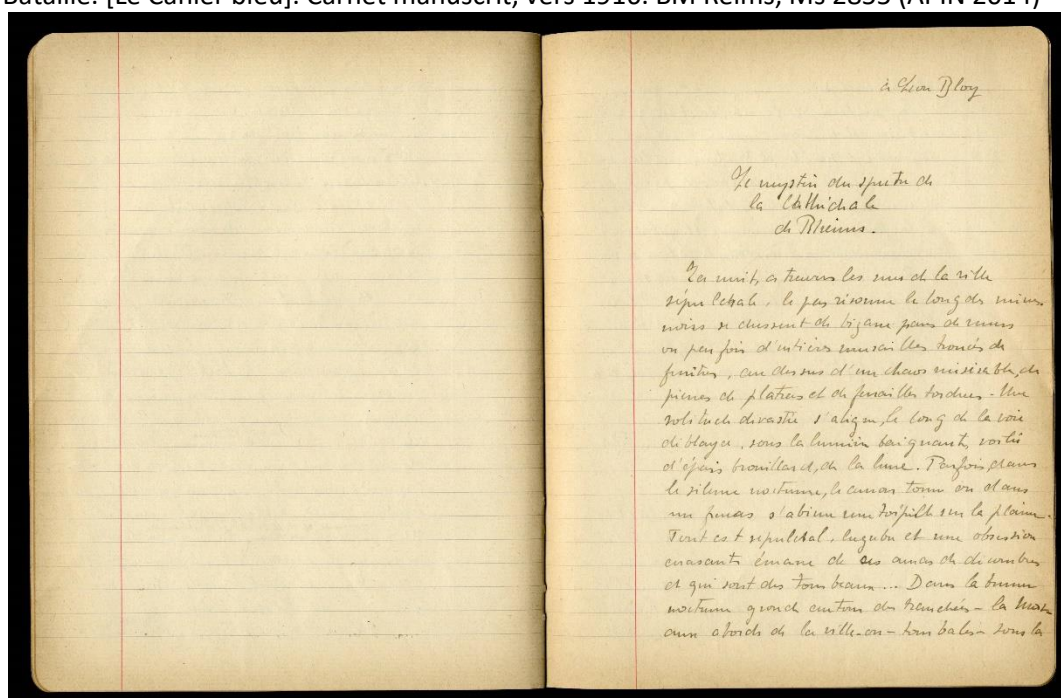 Bataille. [Le Cahier bleu]. Carnet manuscrit, vers 1916. BM Reims, Ms 2855 (APIN 2014)
à Léon Bloy
Le mystère du spectre de
la Cathédrale
de Rheims.
La nuit, à travers les rues de la ville
sépulchrale, le pas résonne le long des ruines
noires se dressent de bizarre pans de murs
ou parfois d'entières murailles trouées de
fenêtres, au dessus d'un chaos misérable, de
pierres de platras et de ferrailles tordues - Une
solitude dévastée s'aligne, le long de la voie
déblayée, sous la lumière baignante, voilée
d'épais brouillard, de la lune. Parfois, dans
le silence nocturne, le canon tonne ou dans
un fracas s'abime une torpille sur la plaine.
Tout est sépulchral, lugubre et une obsession
écrasante émane de ces amas de décombres
et qui sont des tombeaux ... Dans la brume
nocturne gronde autour des tranchées - la Mort
aux abords de la ville - en - tombales - sous la